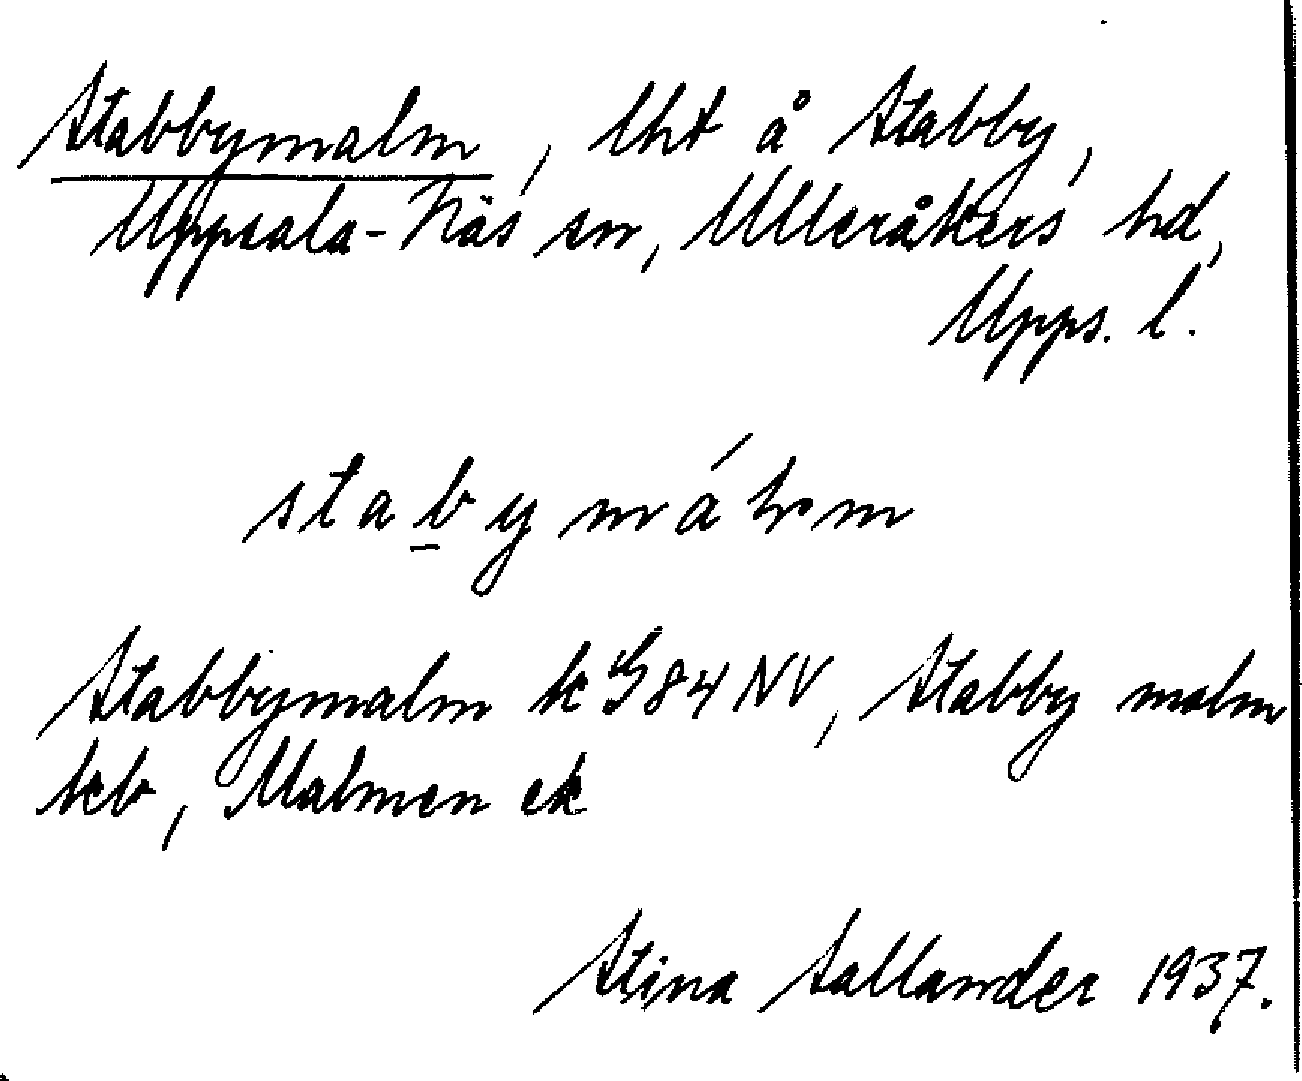 Stabbymalm, lht å Stabby,
Uppsala-Näs sn, Ulleråkers hd,
Upps. l.
stabymálm
Stabbymalm k G84NV, Stabby malm
kb, Malmen ek
Stina Sallander 1937.